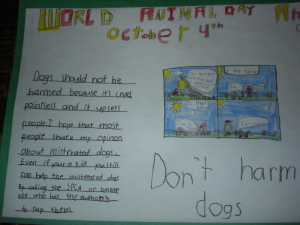 WORLD ANIMAL DAY
October 4th
Dogs should not be
harmed because its cruel
pointless and it upsets
people I hope that most
people share my opinon
about mistreated dogs.
Even if your a kid you still
can help the mistreated dogs
by calling the SPCA or
else who has the authority
to stop them.
Don't harm
dogs